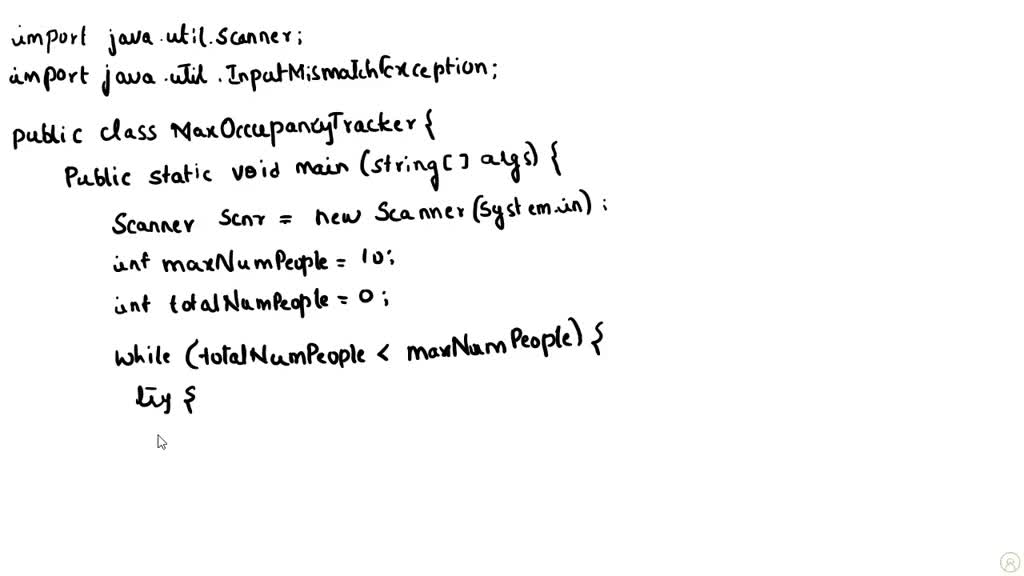 import java.util.Scanner;
import java.util.InputMismatchException;
public class MaxOccupancyTracker {
Public static void main (string[] args) {
Scanner scnr = new Scanner (system.in);
int maxNumPeople = 10;
int totalNumPeople = 0;
while (totalNumPeople < maxNumPeople) {
try {